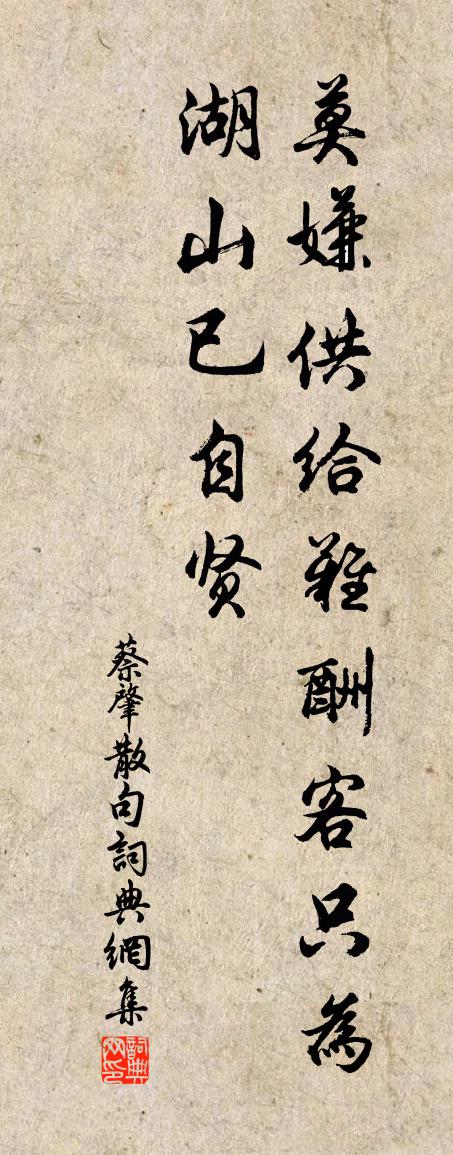 莫嫌供给難酬客只為
湖山已自贤
蔡肇散句詞典網集
詞典网印